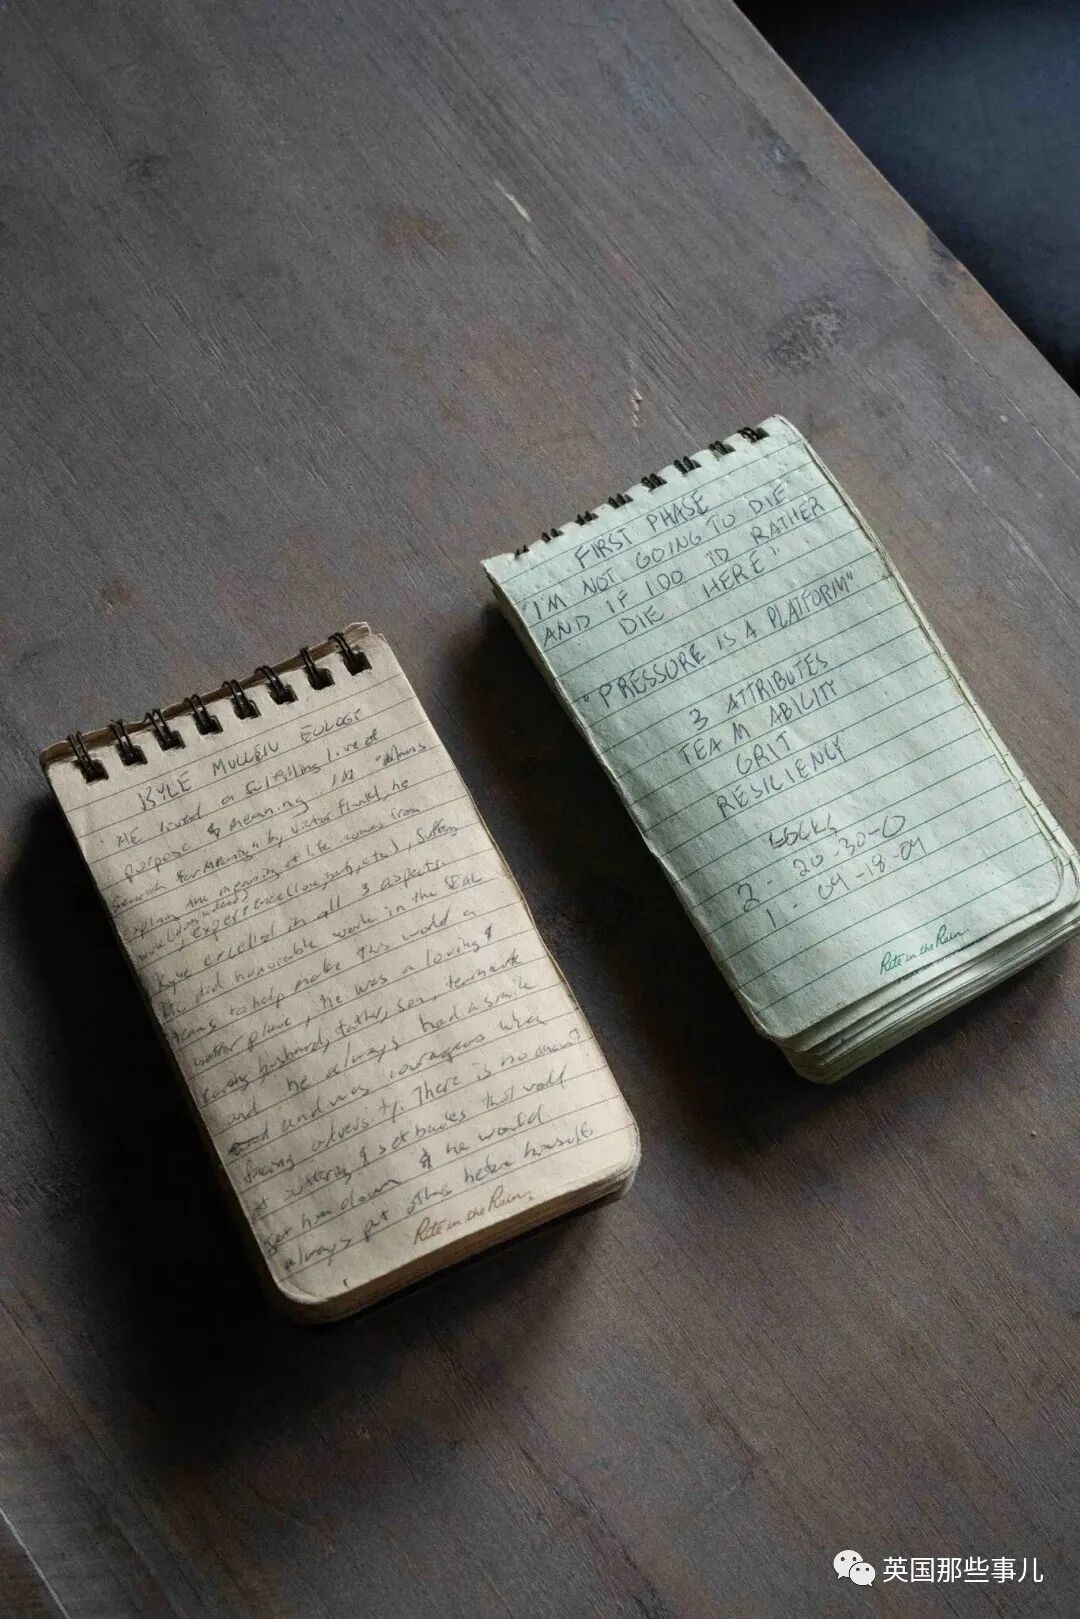 KYLE MULLEN EULOGY
HE lived a fulfilling live of
purpose & meaning. IN "Mans
Search for Meaning" by Victor Frankl, he
explains the meaning of life comes from
, experience(love, ), suffering
Kyle excelled in all 3 aspects.
He did honorable work in the SEAL
teams to help make this world a
better place, he was a loving &
caring husband, father, son, teammate
and he always had a smile
and was courageous when
facing adversity. There is no amount
of suffering & setbacks that would
get him down & he would
always put others before himself
Rite in the Rain
FIRST PHASE
"I'M NOT GOING TO DIE
AND IF I DO I'D RATHER
DIE HERE"
"PRESSURE IS A PLATFORM"
3 ATTRIBUTES
TEAM ABILITY
GRIT
RESILIENCY
LOCKS
2 - 20-30-0
1 - 09-18-09
Rite in the Rain
英国那些事儿